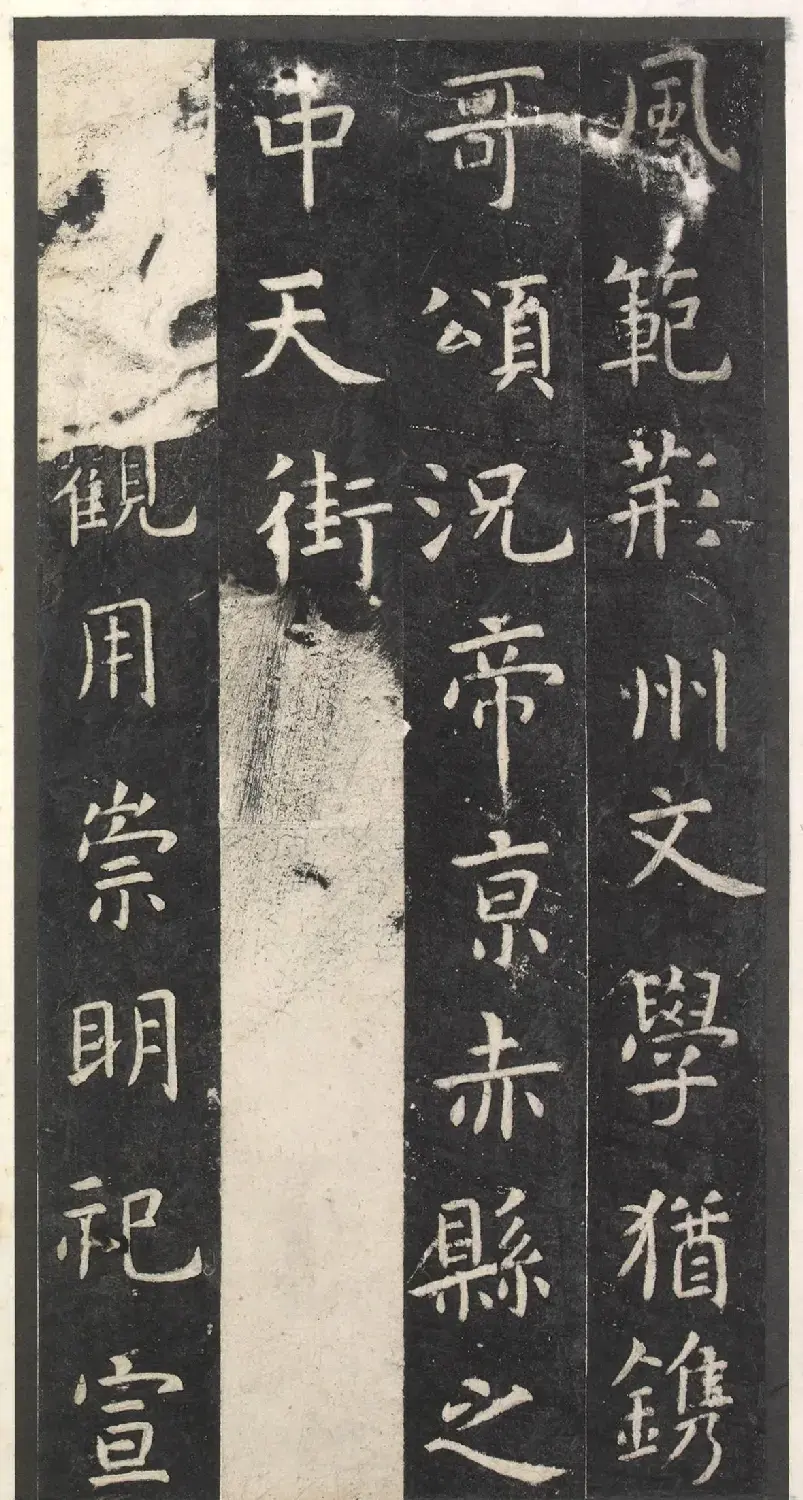 風範荊州文學猶鐫
哥頌況帝京赤縣之
中天街
觀用崇明祀宣